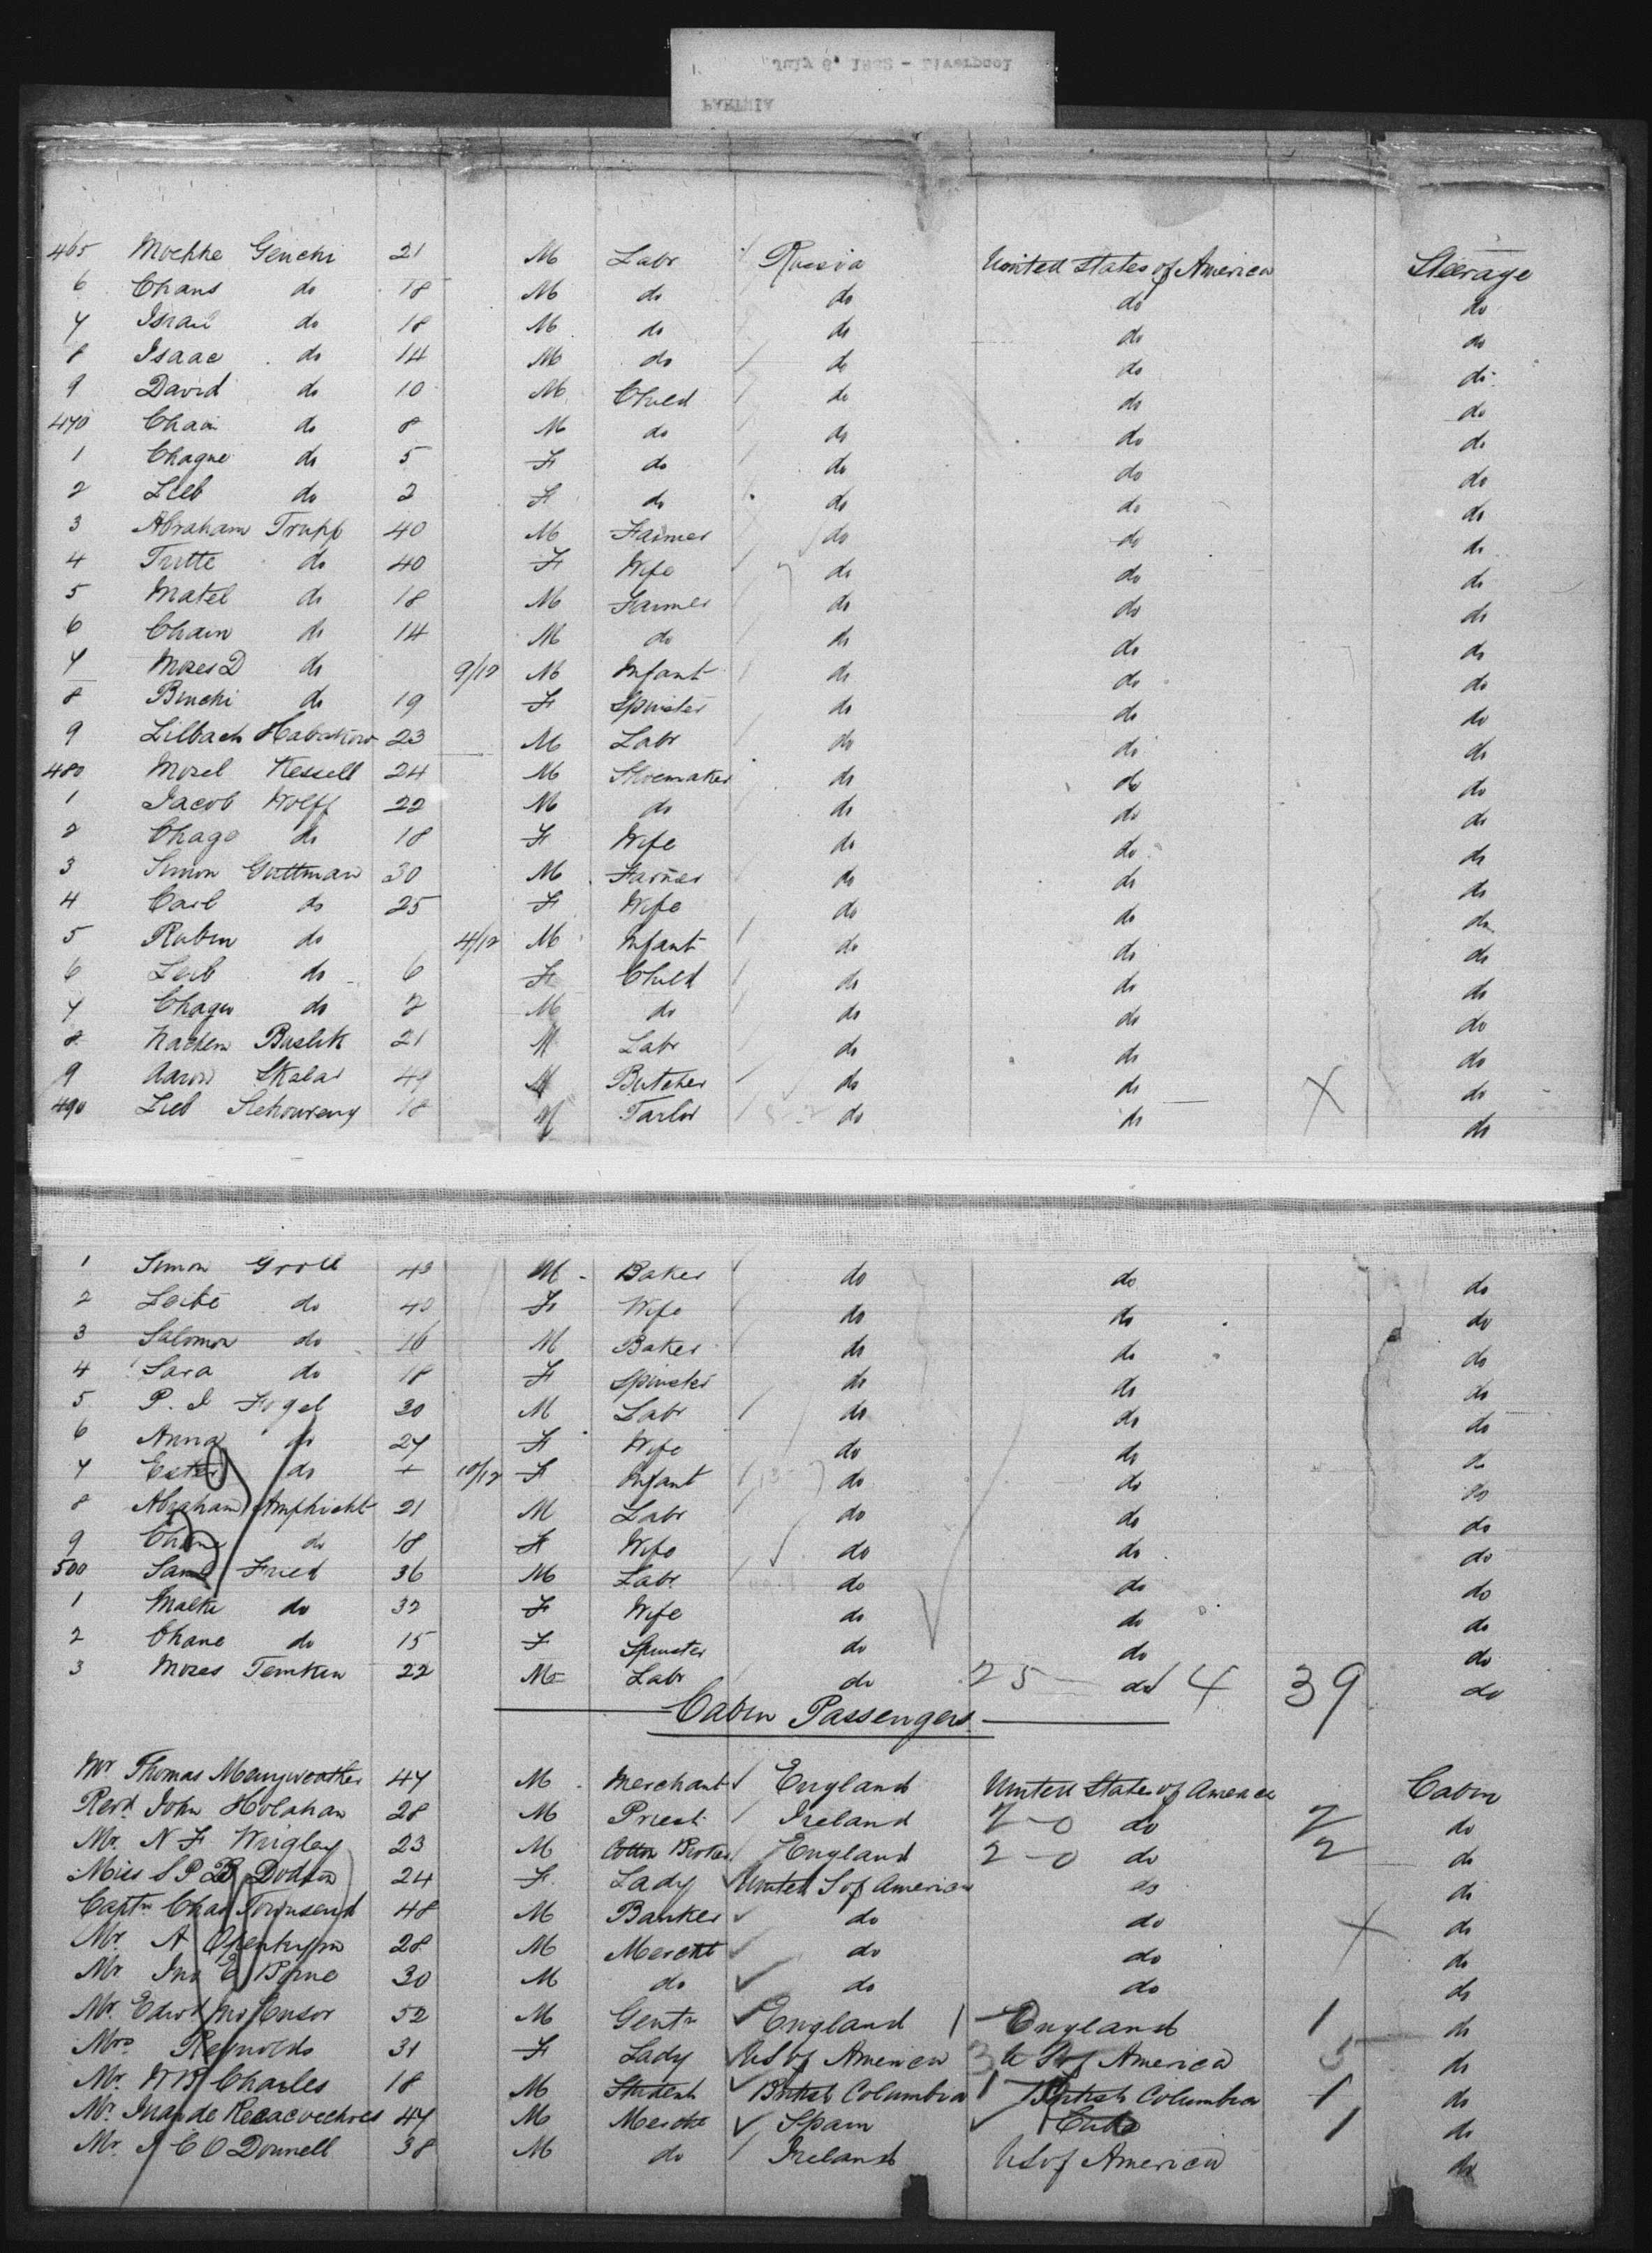 July 6, 1882 - Liverpool
PARTHIA
465 Mochke Genchi 21 M Labr Russia United States of America Steerage
6 Chans do 18 M do do do do
7 Israel do 18 M do do do do
8 Isaac do 14 M do do do do
9 David do 10 M Child do do do
470 Chain do 8 M do do do do
1 Chagne do 5 F do do do do
2 Lieb do 2 F do do do do
3 Abraham Trupp 40 M Farmer do do do
4 Tritte do 40 F Wife do do do
5 Matel do 18 M Farmer do do do
6 Chain do 14 M do do do do
7 Moses D do 9/12 M Infant do do do
8 Binchi do 19 F Spinster do do do
9 Lilbach 23 M Labr do do do
480 Mosel Kessell 24 M Shoemaker do do do
1 Jacob Wolff 22 M do do do do
2 Chage do 18 F Wife do do do
3 Simon Guttman 30 M Farmer do do do
4 Carl do 25 F Wife do do do
5 Rubin do 4/12 M Infant do do do
6 Leib do 6 F Child do do do
7 Chagu do 2 M do do do do
8 Nachem Baslik 21 M Labr do do do
9 Aaron Skalar 49 M Butcher do do X do
490 Lieb 18 M Tailor do do do
1 Simon Groll 43 M Baker do do do
2 Leibe do 40 F Wife do do do
3 Salomon do 16 M Baker do do do
4 Sara do 18 F Spinster do do do
5 P. I Fogel 30 M Labr do do do
6 Anna do 27 F Wife do do do
7 Ester do + 10/12 F Infant do do do
8 Abraham Amphicht 21 M Labr do do do
9 Chane do 18 F Wife do do do
500 Saml Fried 36 M Labr do do do
1 Malke do 32 F Wife do do do
2 Chane do 15 F Spinster do do do
3 Moses Temken 22 M Labr do 25 do 14 39 do
Cabin Passengers
Mr Thomas Merryweather 47 M Merchant England United States of America Cabin
Revd John Holahan 28 M Priest Ireland 2-0 do 2 do
Mr. N F Wrigley 23 M Cotton Broker England 2-0 do 2 do
Miss S P B Dodson 24 F. Lady United S of America do do
Captn Chas Townsend 48 M Banker do do X do
Mr. A Openhym 28 M Mercht do do do
Mr Jno E Byrne 30 M do do do do
Mr. Edwd Mc Ensor 52 M Gentn England 1 England 1 do
Mrs Reynolds 31 F Lady US of America 3 U S of America 5 do
Mr. W B Charles 18 M Student British Columbia 1 British Columbia 1 do
Mr. Juan de 47 M Mercht Spain Cuba 1 do
Mr. J C O Donnell 38 M do Ireland US of America do